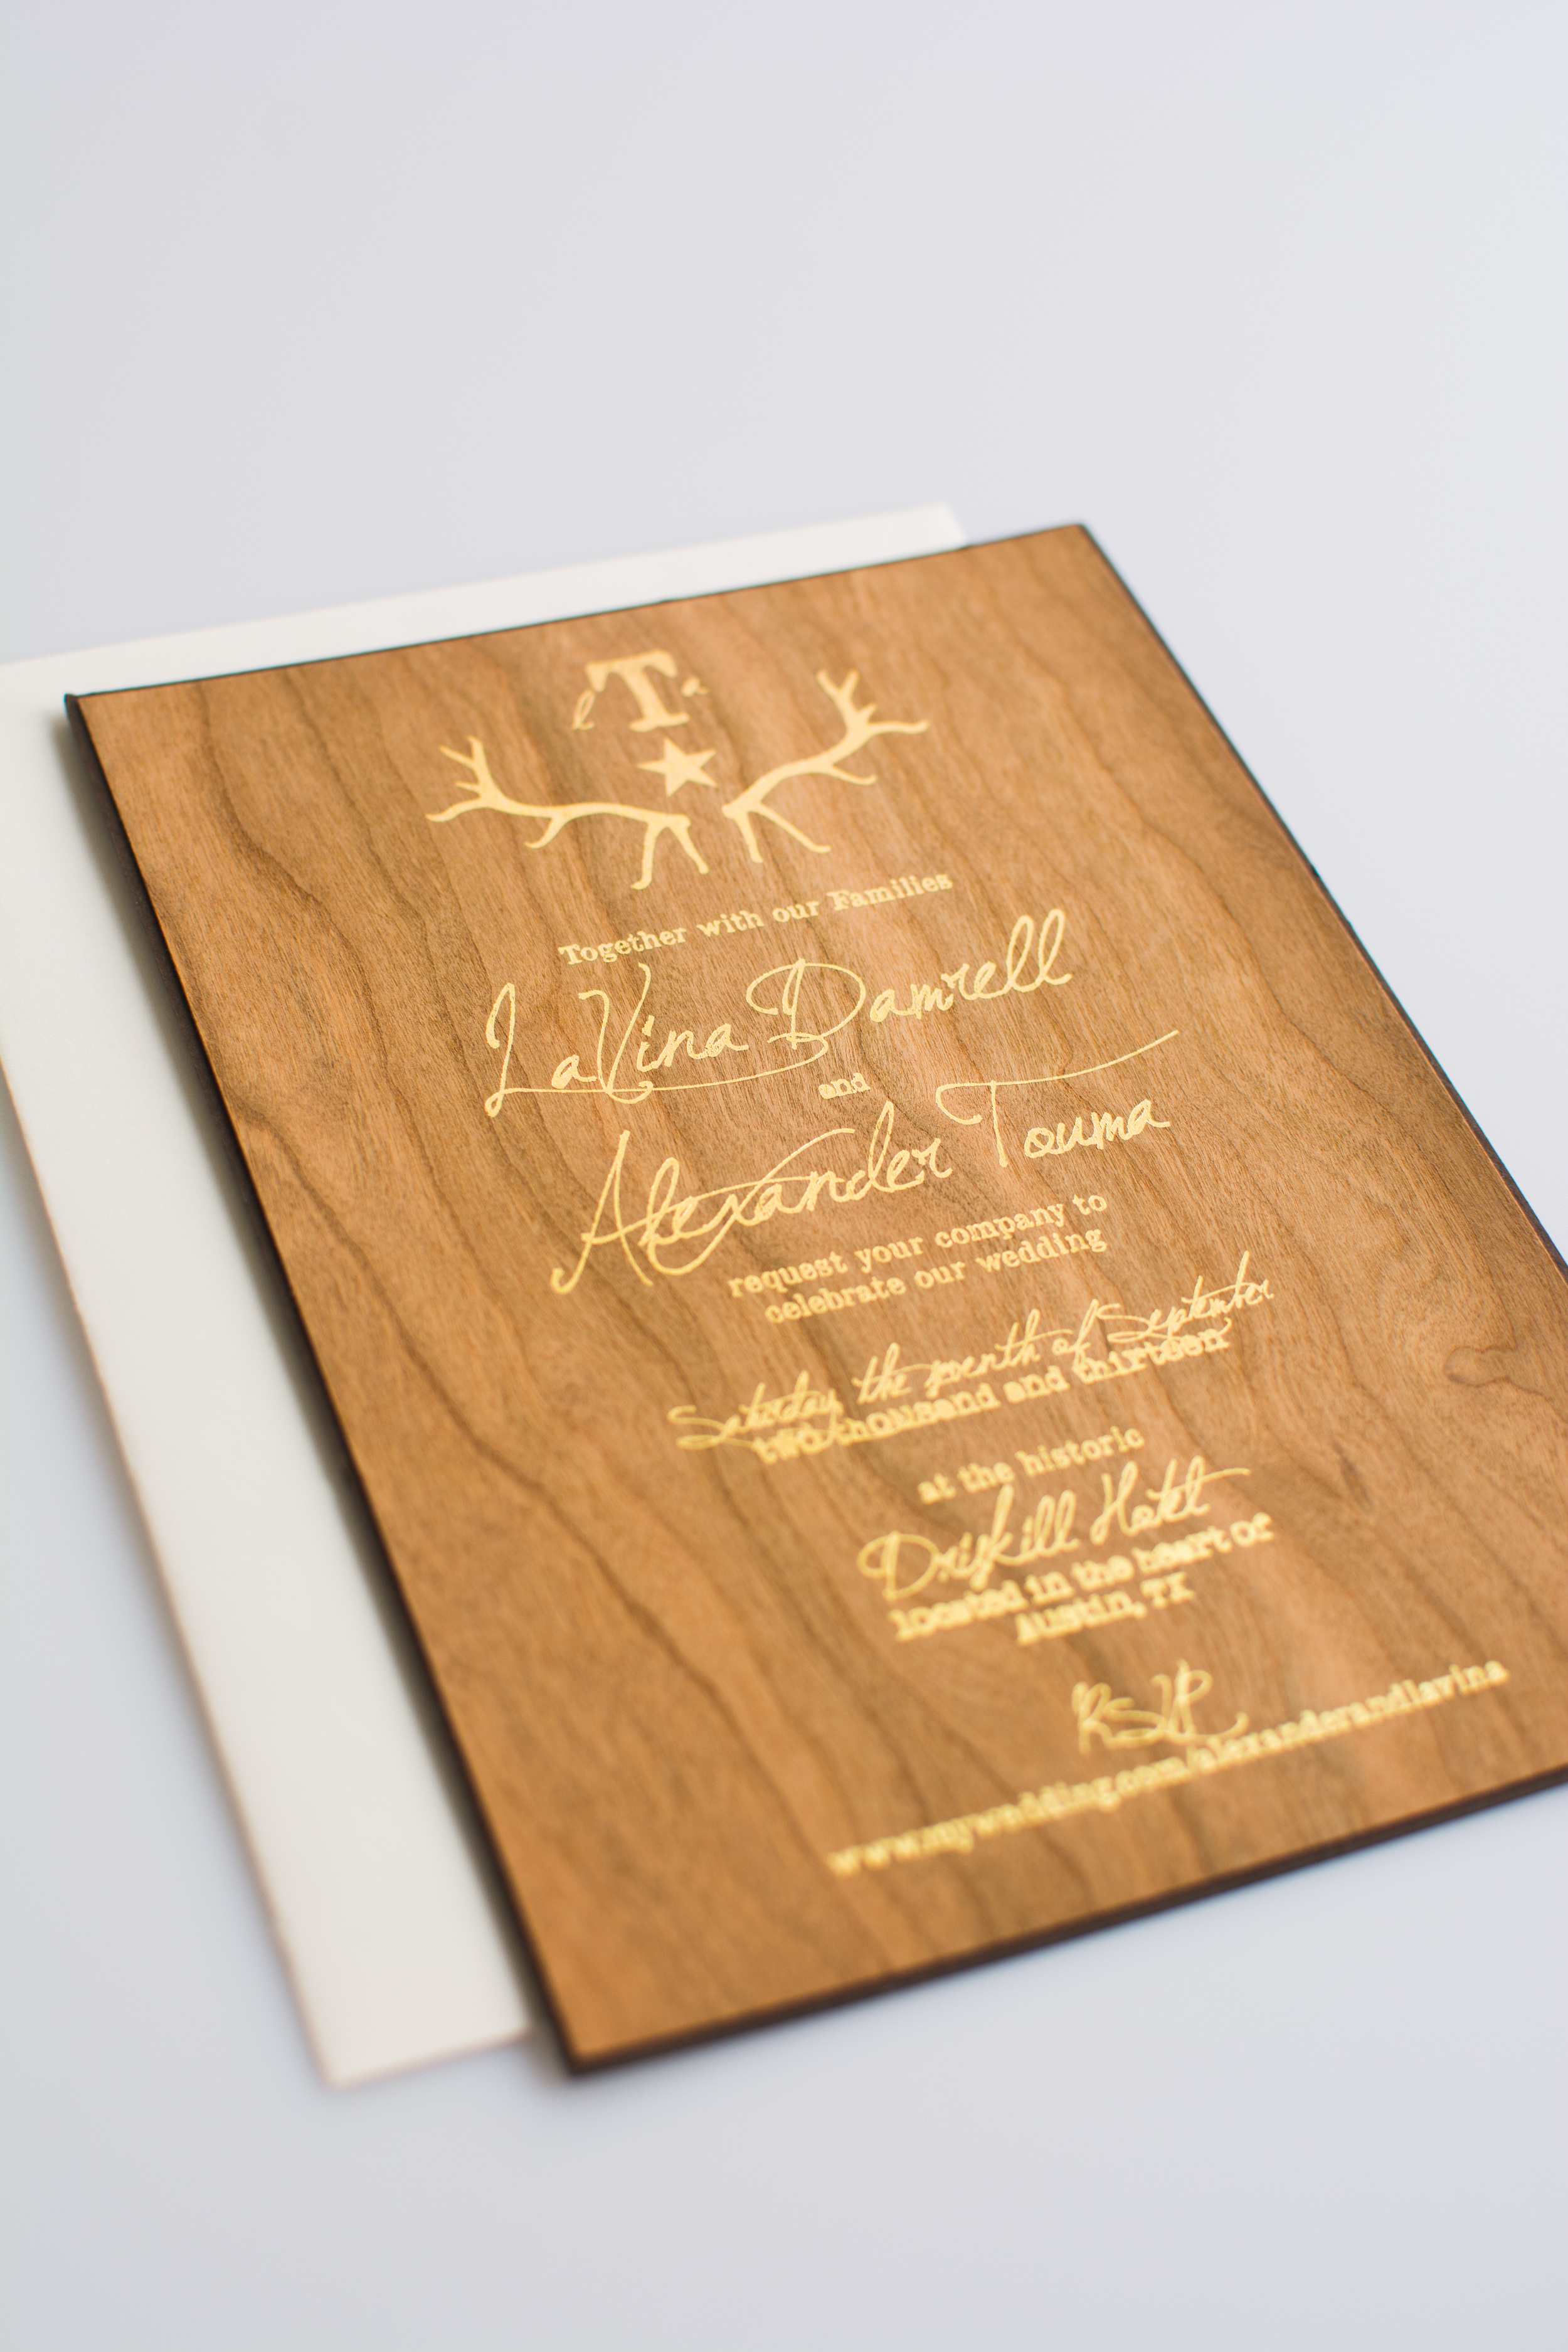 l T a
Together with our Families
LaVina Damrell
and
Alexander Touma
request your company to
celebrate our wedding
Saturday, the seventh of September
two thousand and thirteen
at the historic
Driskill Hotel
located in the heart of
Austin, TX
RSVP
www.mywedding.com/alexanderandlavina